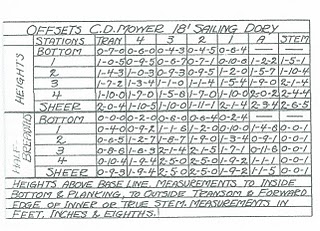 OFFSETS C.D. MOWER 18' SAILING DORY
STATIONS TRAN 4 3 2 1 A STEM
HEIGHTS
BOTTOM 0-7-0 0-6-0 0-4-3 0-4-5 0-6-4 — —
1 1-0-5 0-9-5 0-6-7 0-7-1 0-10-6 1-2-2 1-5-1
2 1-4-3 1-0-3 0-9-3 0-9-5 1-2-0 1-5-7 1-10-4
3 1-9-0 2-1-4
4 1-10-0 2-0-2 2-4-4
SHEER 2-0-4 1-10-5 1-10-0 1-11-1 2-1-4 2-3-4 2-6-5
HALF BREADTHS
BOTTOM 0-0-0 0-2-0 0-6-0 0-6-4 0-2-4 — —
1 0-4-0 0-9-2 1-1-6 1-2-0 0-10-0 0-0-1
2 0-6-5 1-2-7 1-8-2 1-9-0 1-3-4 0-9-1 0-0-1
3 0-8-6 1-6-3 2-1-4 2-1-5 1-7-1 0-11-6 0-0-1
4 0-10-4 1-9-4 2-5-0 2-5-0 1-9-2 1-1-1 0-0-1
SHEER 0-9-3 1-9-4 2-5-0 2-5-0 1-9-2 1-1-5 0-0-1
HEIGHTS ABOVE BASE LINE. MEASUREMENTS TO INSIDE
BOTTOM & PLANKING, TO OUTSIDE TRANSOM & FORWARD
EDGE OF INNER OR TRUE STEM. MEASUREMENTS IN
FEET, INCHES & EIGHTHS.